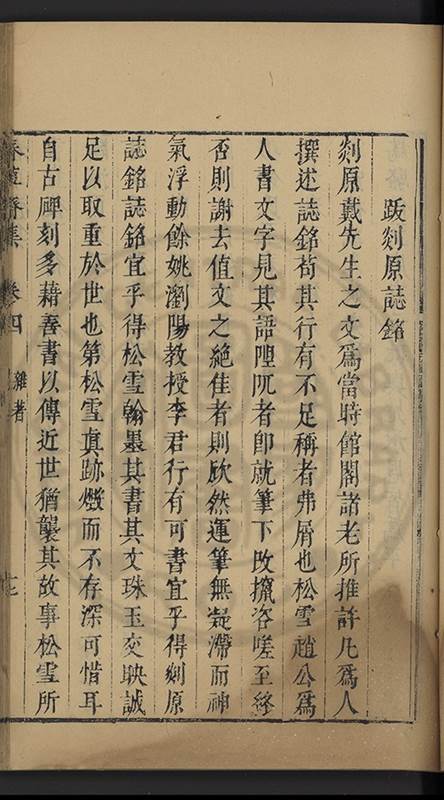 跋剡原誌銘
剡原戴先生之文爲當時館閣諸老所推許凡爲人
撰述誌銘苟其行有不足稱者弗屑也松雪趙公爲
人書文字見其語陋者卽就筆下改攛咨嗟至終
否則謝去值文之絕佳者則欣然運筆無凝滯而神
氣浮動餘姚瀏陽教授李君行有可書宜乎得剡原
誌銘誌銘宜乎得松雪翰墨其書其文珠玉交映誠
足以取重於世也第松雪真跡燬而不存深可惜耳
自古碑刻多藉善書以傳近世猶襲其故事松雪所
集 卷四 雜著